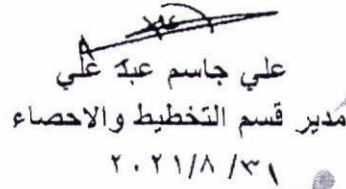 علي جاسم عبد علي
مدير قسم التخطيط والاحصاء
٢٠٢١/٨/٣١